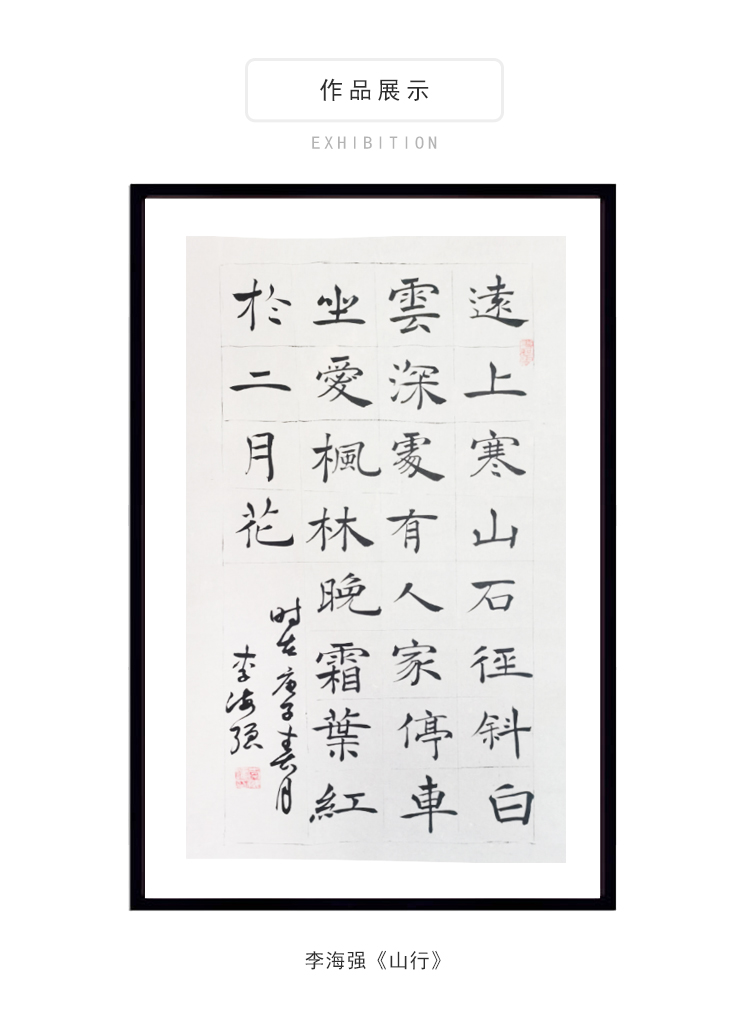 作品展示
EXHIBITION
遠上寒山石徑斜白
雲深處有人家停車
坐愛楓林晚霜葉紅
於二月花
时在庚子春月
李海强
李海强《山行》